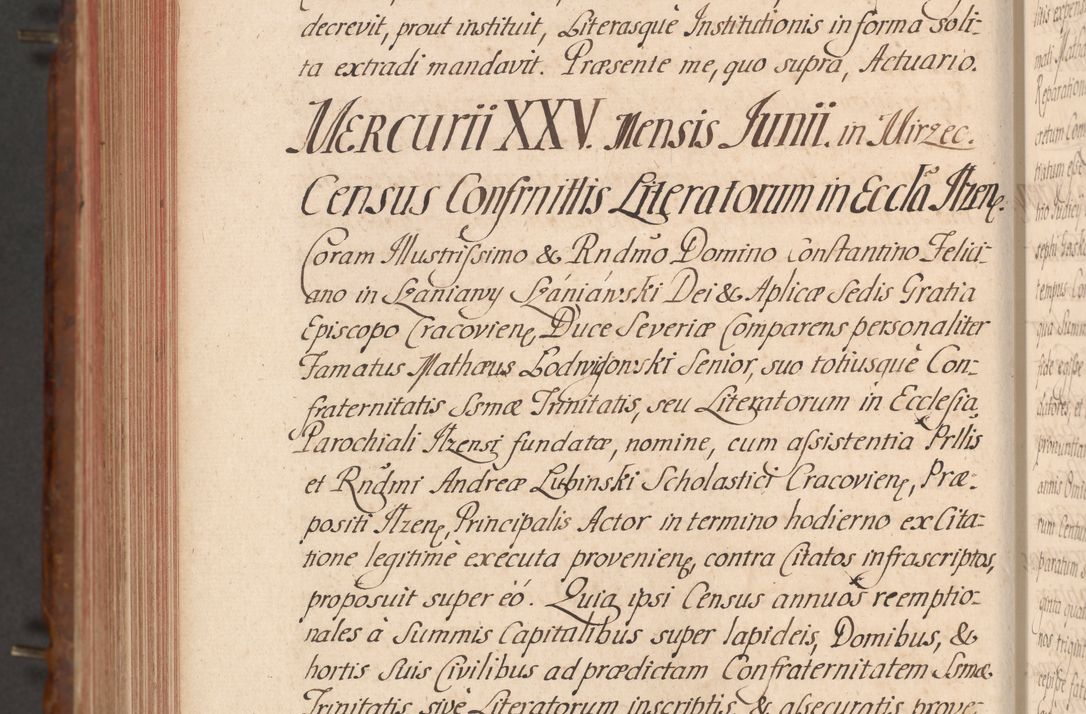 decrevit, prout instituit, Literasque Institutionis in forma soli-
ta extradi mandavit. Præsente me, quo supra, Actuario.
MERCURII XXV. Mensis Junii. in Mirzec.
Census Confrnittis Literatorum in Eccla Ilzen.
Coram Illustrissimo & Rndmo Domino Constantino Felici-
ano in Szaniawy Szaniawski Dei & Aplicæ Sedis Gratia
Episcopo Cracovien, Duce Severiæ Comparens personaliter
Famatus Mathæus Lodwigowski Senior, suo totiusque Con-
fraternitatis Ssmæ Trinitatis, seu Literatorum in Ecclesia
Parochiali Ilzensi fundatæ, nomine, cum assistentia Prllis
et Rndmi Andreæ Lubinski Scholastici Cracovien, Præ-
positi Ilzen, Principalis Actor in termino hodierno ex Cita-
tione legitime executa provenien, contra Citatos infrascriptos,
proposuit super eo. Quia ipsi Census annuos reemptio-
nales à Summis Capitalibus super lapideis, Domibus, &
hortis suis Civilibus ad prædictam Confraternitatem Ssmæ
Trinitatis sivè Literatorum inscriptis & assecuratis prove-